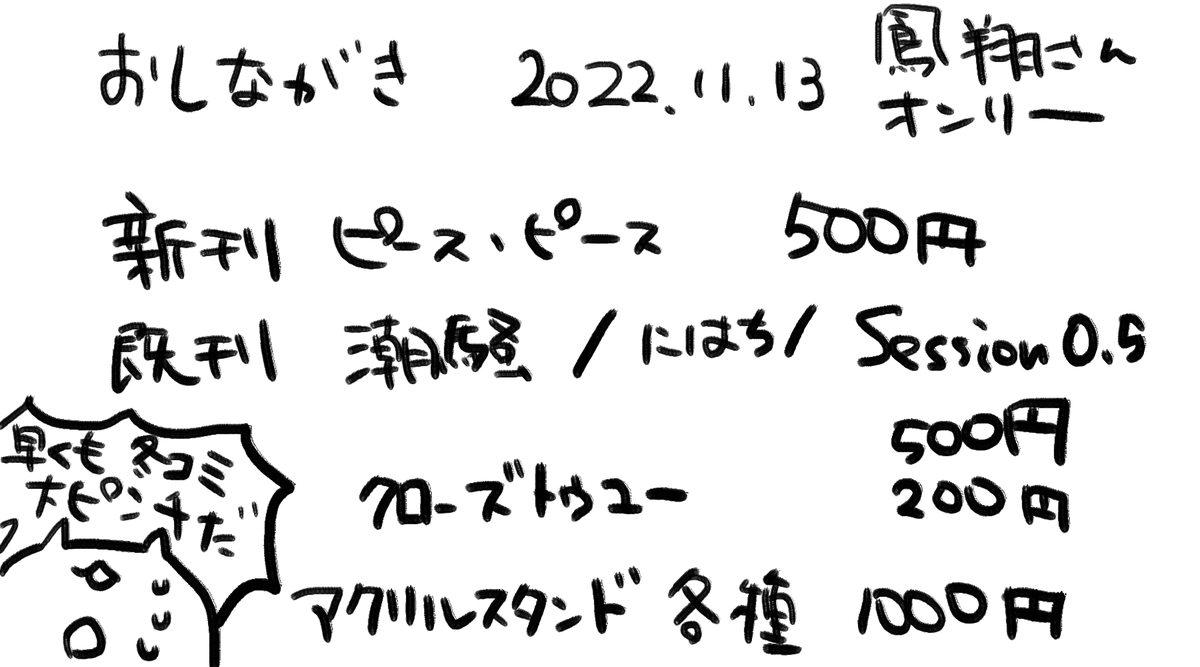 おしながき 2022.11.13 鳳翔さん
オンリー
新刊 ピース、ピース 500円
既刊 潮騒/にはち/Session0.5
500円
クローズトゥユー 200円
アクリルスタンド 各種 1000円
早くも冬コミ
大ピンチだ